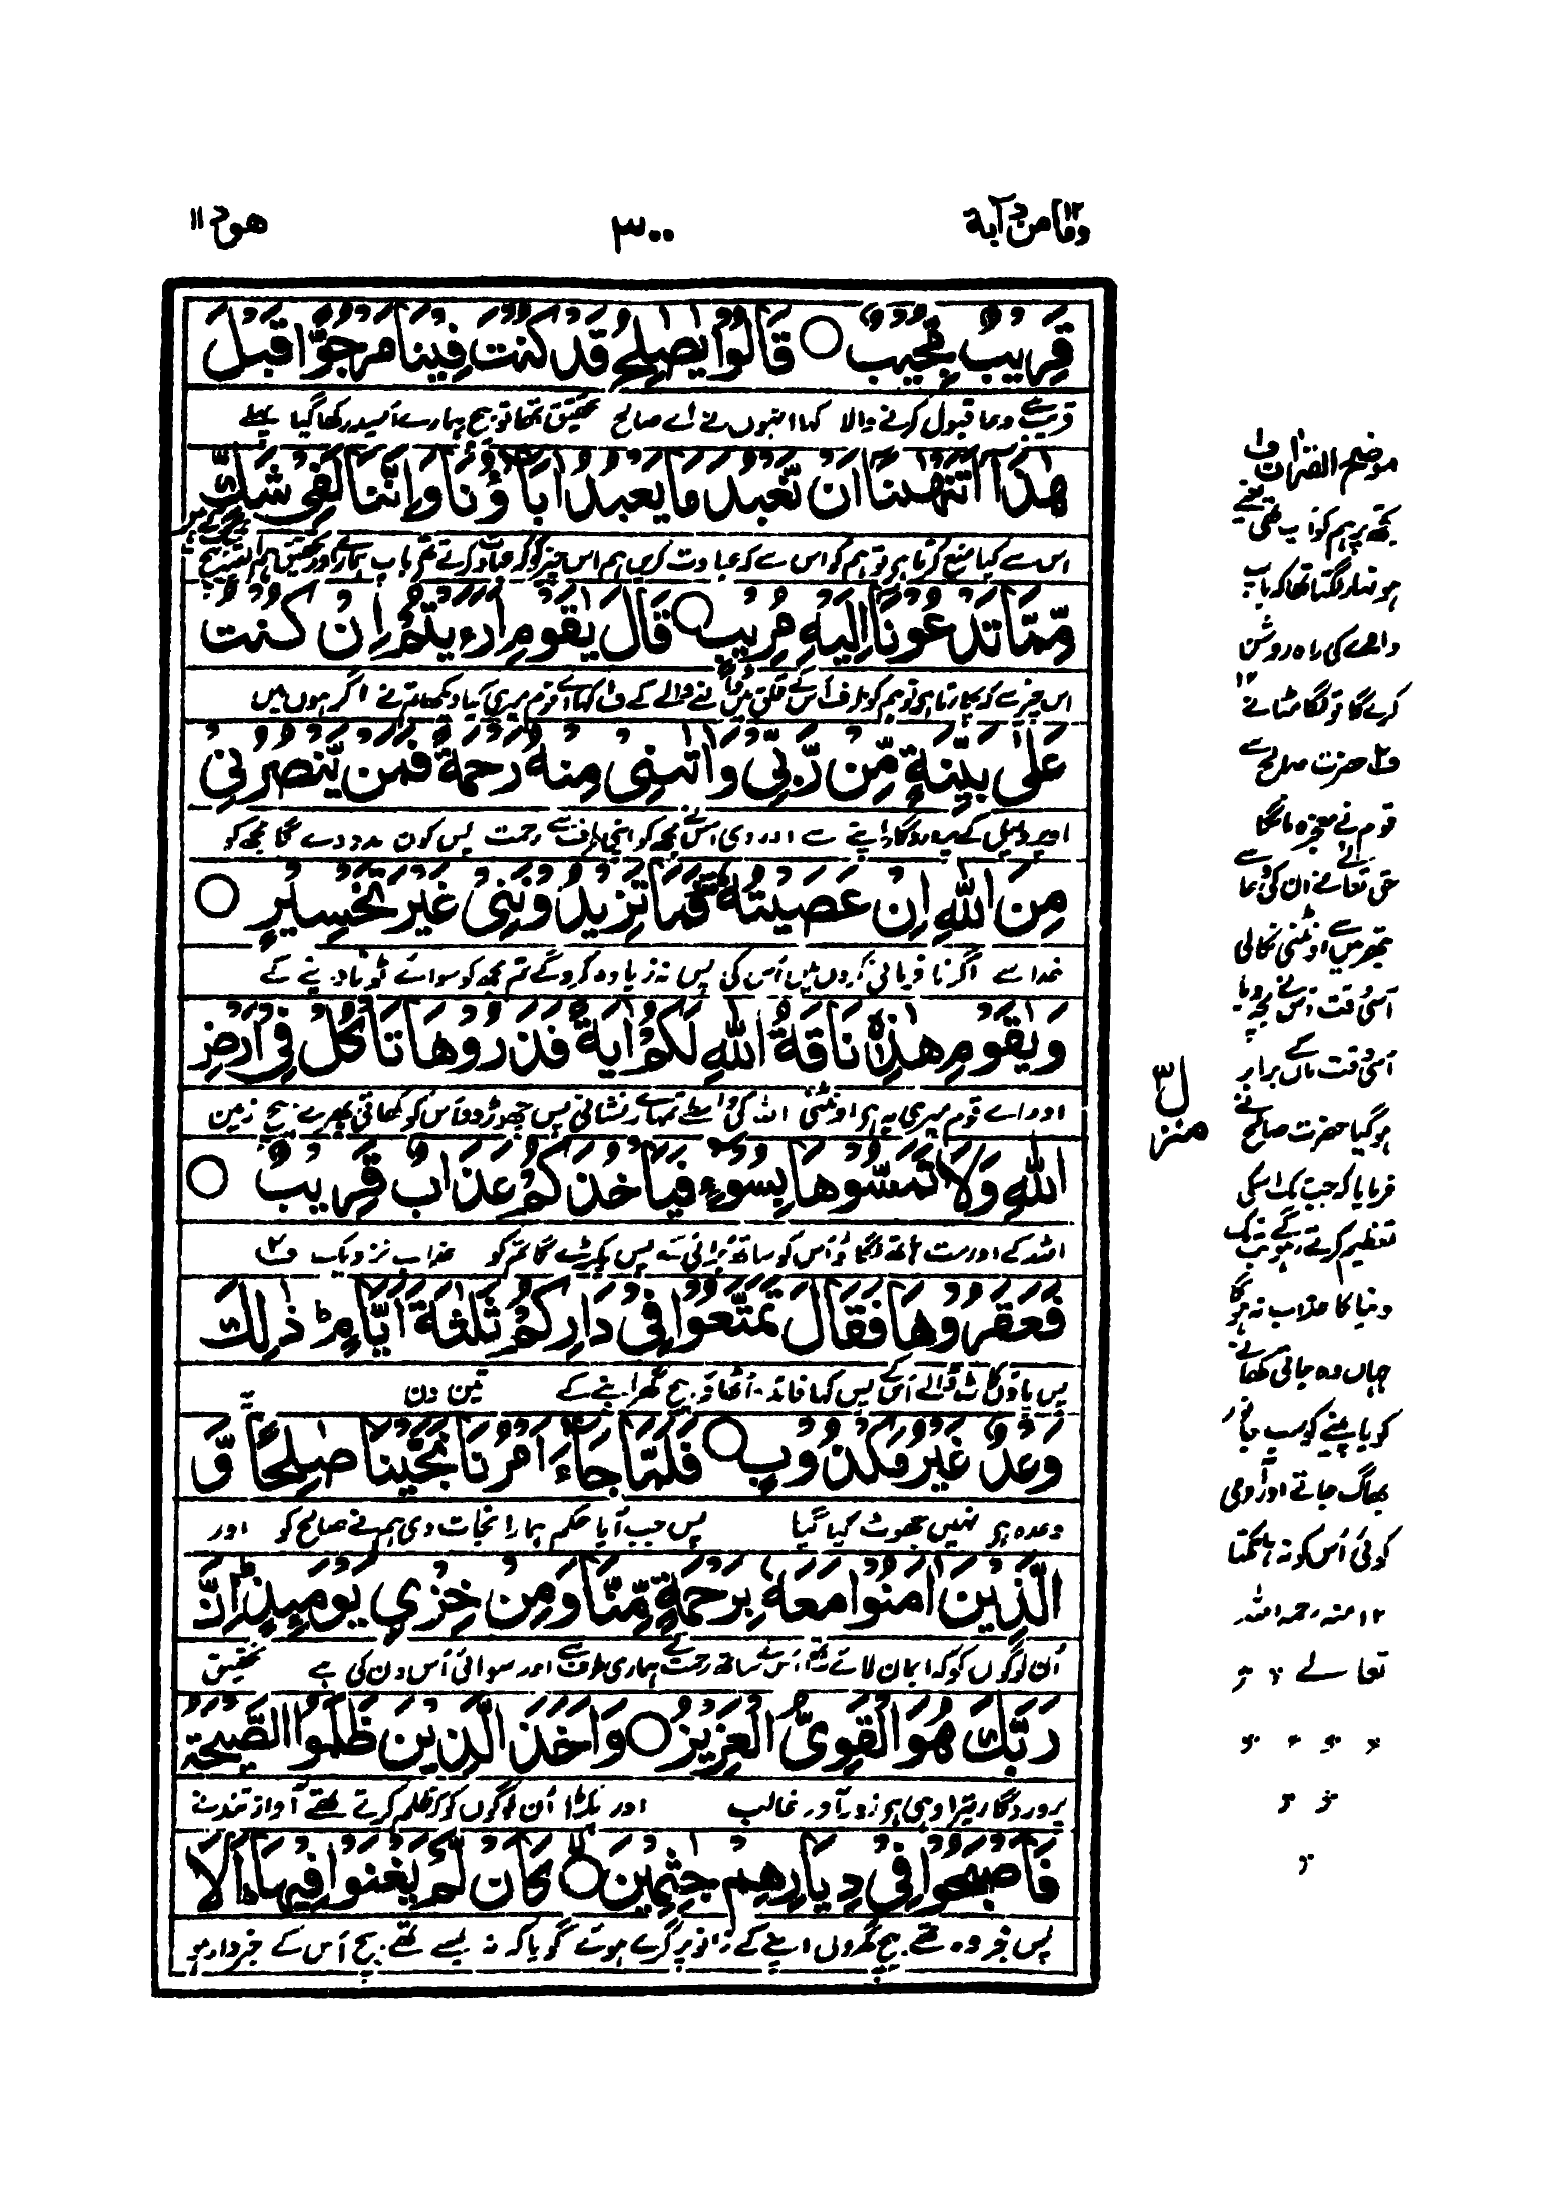 ومامن دآبة ١٢
٣٠٠
هود ١١
قَرِيْبٌ مُّجِيْبٌ ○ قَالُوْا يٰصٰلِحُ قَدْ كُنْتَ فِيْنَا مَرْجُوًّا قَبْلَ
قریب ہے دعا قبول کرنے والا کہا انہوں نے اے صالح تحقیق تھا تو بیچ ہمارے امید رکھا گیا پہلے
هٰذَآ اَتَنْهٰىنَآ اَنْ نَّعْبُدَ مَا يَعْبُدُ اٰبَآؤُنَا وَاِنَّنَا لَفِيْ شَكٍّ
اس سے کیا منع کرتا ہے تو ہم کو اس سے کہ عبادت کریں ہم اس چیز کو کہ عبادت کرتے تھے باپ ہمارے اور تحقیق ہم البتہ بیچ
مِّمَّا تَدْعُوْنَآ اِلَيْهِ مُرِيْبٍ ○ قَالَ يٰقَوْمِ اَرَءَيْتُمْ اِنْ كُنْتُ
اس چیز سے کہ پکارتا ہے تو ہم کو طرف اس کے قلق میں ڈالنے والے کے ف کہا اے قوم میری کیا دیکھا تم نے اگر ہوں میں
عَلٰى بَيِّنَةٍ مِّنْ رَّبِّيْ وَاٰتٰىنِيْ مِنْهُ رَحْمَةً فَمَنْ يَّنْصُرُنِيْ
اوپر دلیل کے پروردگار اپنے سے اور دی اس نے مجھ کو اپنی طرف سے رحمت پس کون مدد دے گا مجھ کو
مِنَ اللّٰهِ اِنْ عَصَيْتُهٗ فَمَا تَزِيْدُوْنَنِيْ غَيْرَ تَخْسِيْرٍ ○
خدا سے اگر نافرمانی کروں میں اس کی پس نہ زیادہ کروگے تم مجھ کو سوائے ٹوٹا دینے کے
وَيٰقَوْمِ هٰذِهٖ نَاقَةُ اللّٰهِ لَكُمْ اٰيَةً فَذَرُوْهَا تَاْكُلْ فِيْٓ اَرْضِ
اور اے قوم میری یہ ہے اونٹنی اللہ کی واسطے تمہارے نشانی پس چھوڑ دو اس کو کھاتی پھرے بیچ زمین
اللّٰهِ وَلَا تَمَسُّوْهَا بِسُوْٓءٍ فَيَاْخُذَكُمْ عَذَابٌ قَرِيْبٌ ○
اللہ کے اور مت ہاتھ لگاؤ اس کو ساتھ برائی کے پس پکڑے گا تم کو عذاب نزدیک ف٢
فَعَقَرُوْهَا فَقَالَ تَمَتَّعُوْا فِيْ دَارِكُمْ ثَلٰثَةَ اَيَّامٍ ذٰلِكَ
پس پاؤں کاٹ ڈالے اس کے پس کہا فائدہ اٹھاؤ بیچ گھر اپنے کے تین دن یہ
وَعْدٌ غَيْرُ مَكْذُوْبٍ ○ فَلَمَّا جَآءَ اَمْرُنَا نَجَّيْنَا صٰلِحًا وَّ
وعدہ ہے نہیں جھوٹ کیا گیا پس جب آیا حکم ہمارا نجات دی ہم نے صالح کو اور
الَّذِيْنَ اٰمَنُوْا مَعَهٗ بِرَحْمَةٍ مِّنَّا وَمِنْ خِزْيِ يَوْمِئِذٍ اِنَّ
ان لوگوں کو کہ ایمان لائے تھے ساتھ اس کے ساتھ رحمت کے ہماری طرف سے اور رسوائی اس دن کی سے تحقیق
رَبَّكَ هُوَ الْقَوِيُّ الْعَزِيْزُ ○ وَاَخَذَ الَّذِيْنَ ظَلَمُوا الصَّيْحَةُ
پروردگار تیرا وہی ہے زور آور غالب اور پکڑا ان لوگوں کو کہ ظلم کرتے تھے آواز تند نے
فَاَصْبَحُوْا فِيْ دِيَارِهِمْ جٰثِمِيْنَ ○ كَاَنْ لَّمْ يَغْنَوْا فِيْهَا اَلَآ
پس فجر وہ تھے بیچ گھروں اپنے کے زانو پر گرے ہوئے گویا کہ نہ بسے تھے بیچ اس کے خبردار ہو
موضح القرآن ف١
تجھ پر ہم کو امید تھی یعنے
ہونہار لگتا تھا کہ باپ
دادے کی راہ روشن
کرے گا تو لگا مٹانے ١٢
ف٢ حضرت صالح سے
قوم نے معجزہ مانگا
حق تعالے نے ان کی دعا سے
پتھر میں سے اونٹنی نکالی
اسی وقت اس نے بچہ دیا
اسی وقت ماں کے برابر
ہوگیا حضرت صالح نے
فرمایا کہ جب تک اسکی
تعظیم کرتے رہوگے تب تک
دنیا کا عذاب نہ ہوگا
جہاں وہ جاتی کھانے
کو یا پینے کو سب جانور
بھاگ جاتے اور آدمی
کوئی اس کو نہ ہانکتا
١٢ منہ رحمہ اللہ
تعالے
منزل ٣